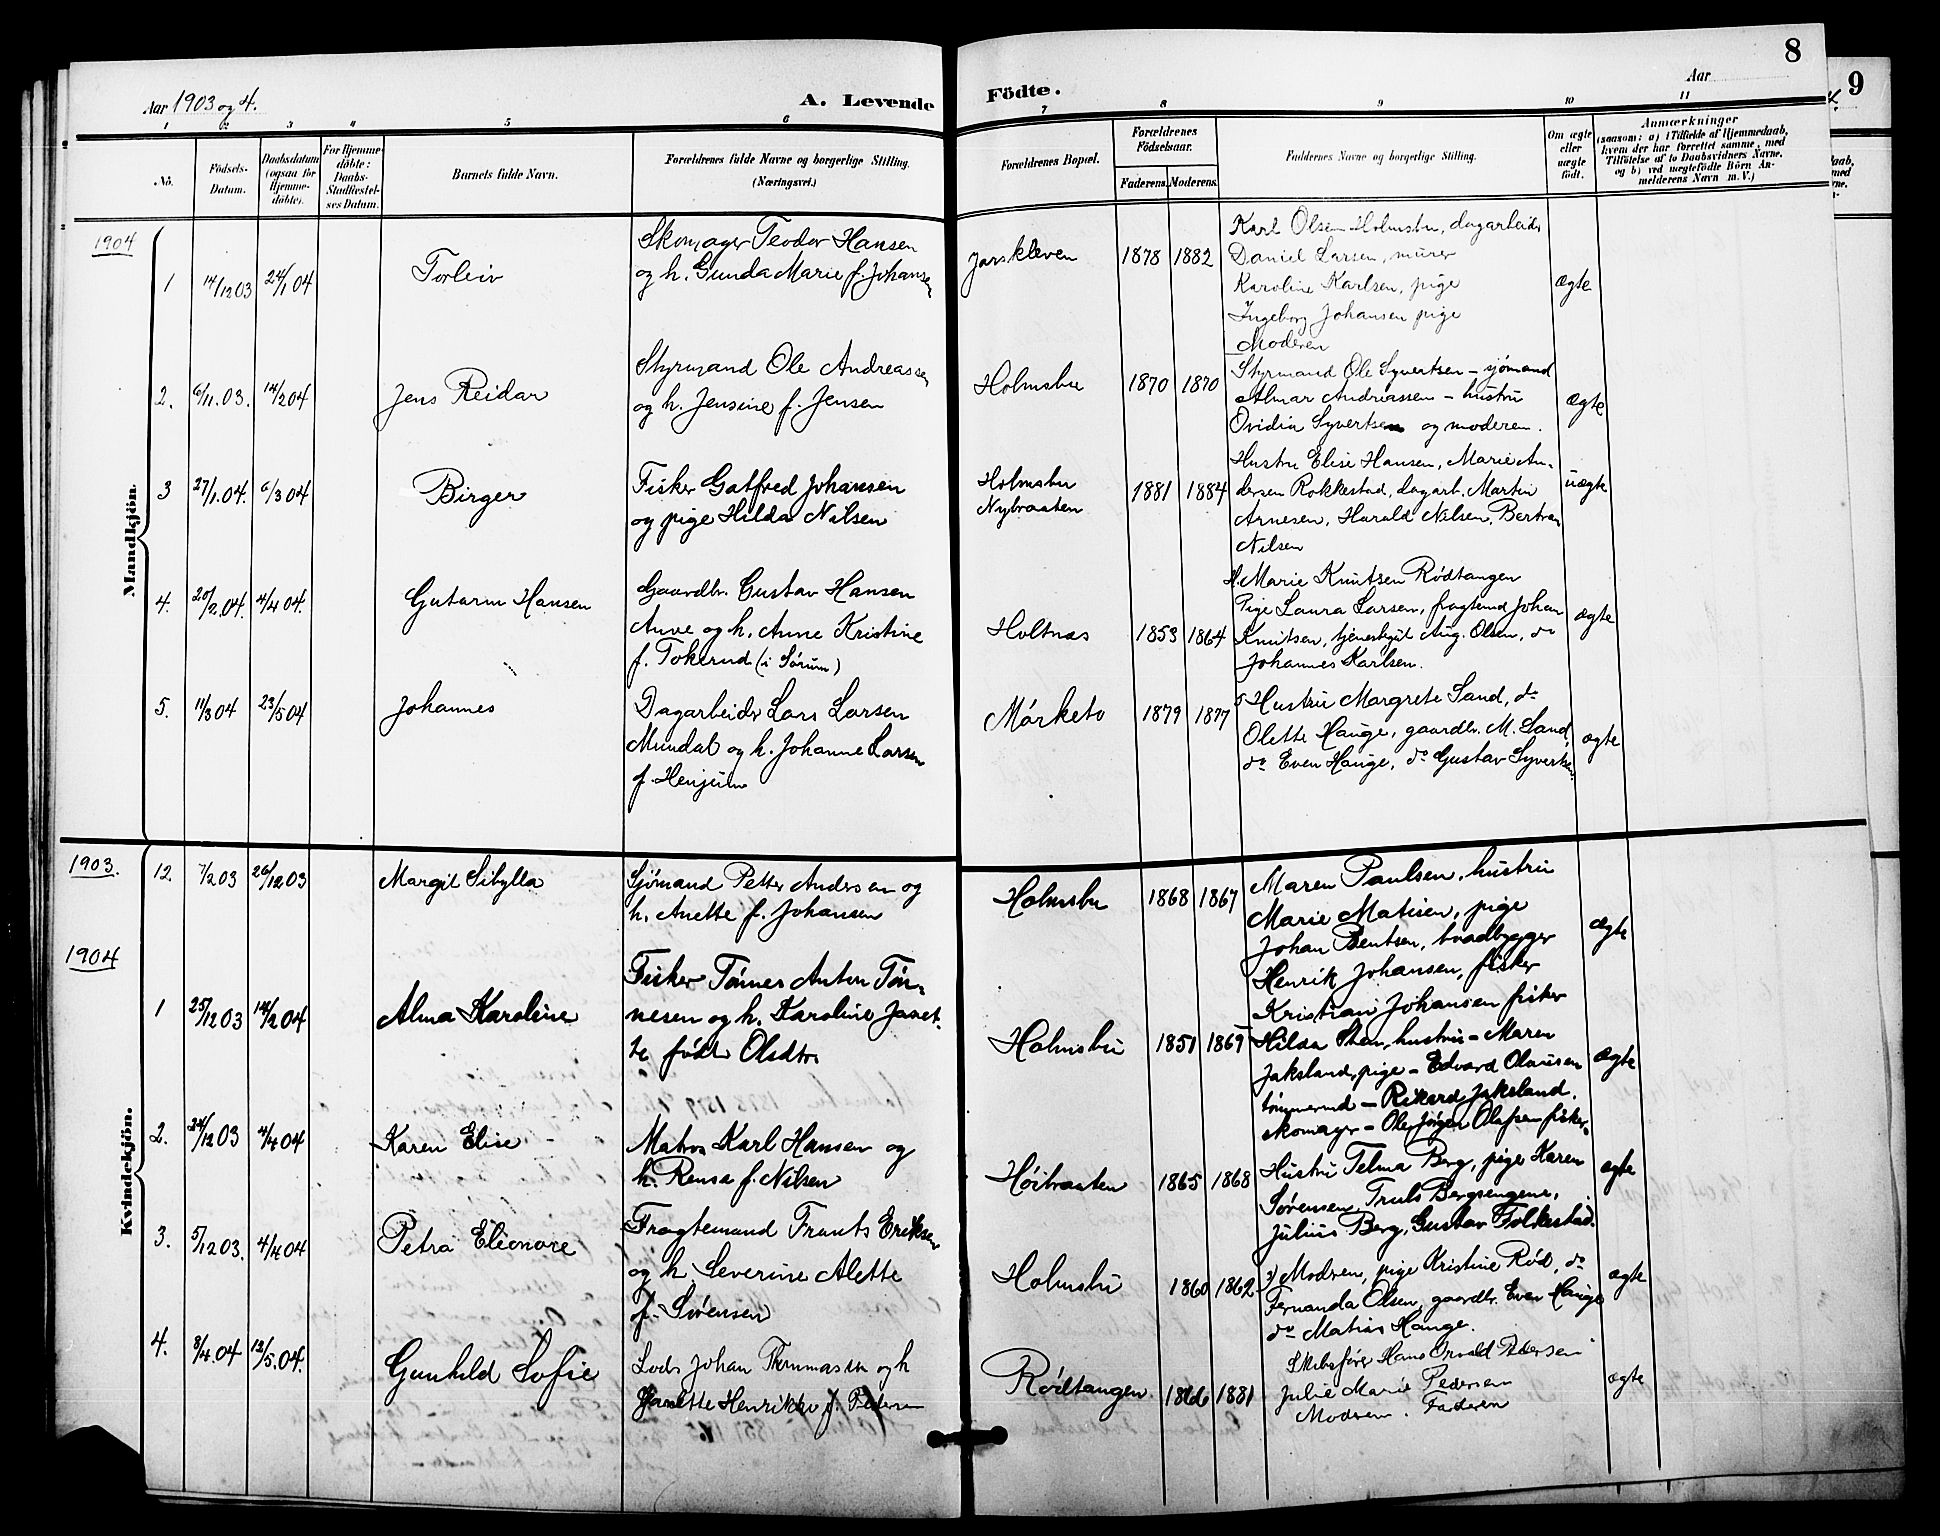 8
9
Aar 1903 og 4.
A. Levende
Födte.
Aar
1 2 3 4 5 6 7 8 9 10 11
No.
Födsels-
Datum.
Daabsdatum
(ogsaa for
Hjemme-
döbte).
For Hjemme-
döbte:
Daabs-
Stadfæstel-
ses Datum.
Barnets fulde Navn.
Forældrenes fulde Navne og borgerlige Stilling.
(Næringsvei.)
Forældrenes Bopæl.
Forældrenes
Födselsaar.
Faderens. Moderens.
Faddernes Navne og borgerlige Stilling.
Om ægte
eller
uægte
födt.
Anmærkninger
(saasom: a) i Tilfælde af Hjemmedaab,
hvem der har forrettet samme, med
Tilföielse af to Daabsvidners Navne,
og b) ved uægtefödte Börn An-
melderens Navn m. V.)
Mandkjön.
1904
1 14/12 03 24/1 04 Torleiv
Skomager Teodor Hansen
og h. Gunda Marie f. Johansen
Jarskleven 1878 1882
Karl Olsen Holmsbu, dagarbeider
Daniel Larsen, murer
Karoline Karlsen, pige
Ingeborg Johansen pige
Moderen
ægte
2. 6/11.03. 14/2 04 Jens Reidar
Styrmand Ole Andreassen
og h. Jensine f. Jensen
Holmsbu 1870 1870
Styrmand Ole Syvertsen – sjömand
Almar Andreassen – hustru
Ovidia Syvertsen og moderen.
ægte
3 27/1.04. 6/3 04 Birger
Fisker Gotfred Johansen
og pige Hilda Nilsen
Holmsbu
Nybraaten
1881 1884
Hustru Elise Hansen, Marie An-
dersen Rokkestad, dagarb. Martin
Arnesen, Harald Nilsen, Bertran
Nilsen
uægte
4. 20/2.04. 4/4 04. Gutorm Hansen
Gaardbr. Gustav Hansen
Auve og h. Anne Kristine
f. Tokerud (i Sørum)
Holtnæs 1853 1864
H. Marie Knutsen Rödtangen
Pige Laura Larsen, fragtemd Johan
Knutsen, tjenestgut Aug. Olsen, do
Johannes Karlsen.
ægte
5. 11/3 04 23/5 04 Johannes
Dagarbeider Lars Larsen
Mundal og h. Johanne Larsen
f. Henjum
Mørketo 1879 1877
Hustru Margrete Sand, do
Olette Hauge, gaardbr. M. Sand,
do Even Hauge, do Gustav Syvertsen
ægte
Kvindekjön.
1903.
12. 7/2 03 26/12 03 Margit Sibylla
Sjömand Petter Andersen og
h. Anette f. Johansen
Holmsbu 1868 1867
Maren Paulsen, hustru
Marie Matisen, pige
Johan Bentsen, baadbygger
Henrik Johansen, fisker
Kristian Johansen fisker
ægte
1904
1 25/12 03 14/2 04 Alma Karoline
Fisker Tönnes Anton Tön-
nesen og h. Karoline Janet-
te född Olsdtr
Holmsbu 1851 1865
Hilda Sten, hustru – Maren
Jaksland, pige – Edvard Olausen
tömmermd – Rikard Jaksland.
skomager – Ole Jörgen Olafsen fisker.
ægte
2. 24/12 03 4/4 04 Karen Elise
Matros Karl Hansen og
h. Rensa f. Nilsen
Höibraaten 1865 1868
Hustru Telma Berg, pige Karen
Sørensen, Truls Bergsengene,
Julius Berg, Gustav Folkestad.
ægte
3. 5/12 03. 4/4 04 Petra Eleonore
Fragtemand Frants Eriksen
og h. Severine Alette
f. Sørensen
Holmsbu 1860 1862
Modren, pige Kristine Röd, do
Fernanda Olsen, gaardbr. Even Hauge
do Matias Hauge.
ægte
4. 8/4.04 13/5.04. Gunhild Sofie
Lods Johan Thommasen og h
Janette Henrikke f. Pedersen
Rödtangen. 1866 1881
Skibsförer Hans Orvald Pedersen
Julie Marie Pedersen
Modren. Faderen
ægte